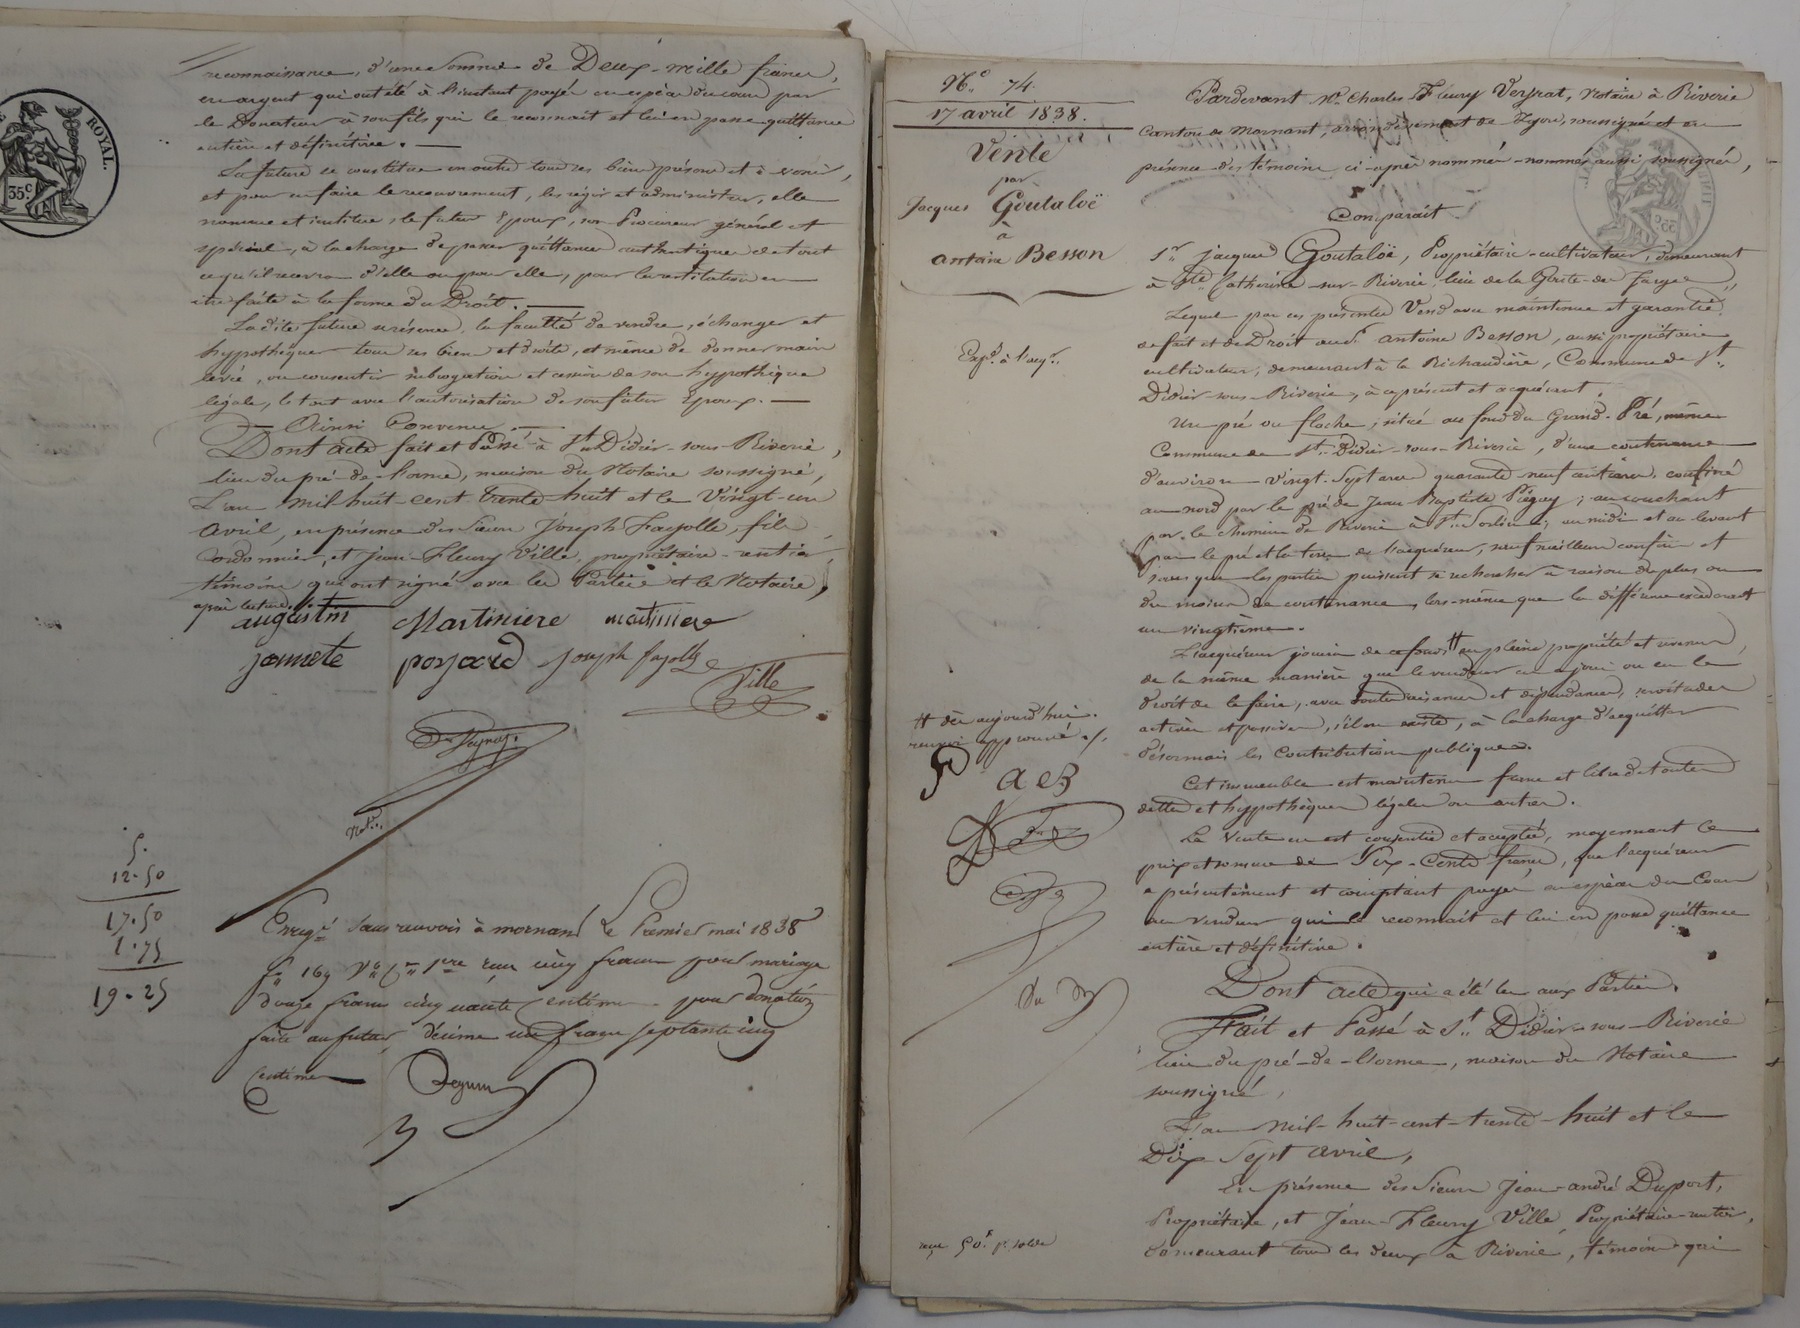 reconnaissance, d'une somme de Deux-mille francs,
en argent qui ont été à l'instant payés en espèces du cours par
le Donateur à son fils qui le reconnait et lui en passe quittance
entière et définitive. —
La future se constitue en outre tous ses biens présens et à venir,
et pour en faire le recouvrement, les régir et administrer, elle
nomme et institue, le futur Epoux, son Procureur général et
spécial, à la charge de passer quittances authentiques de tout
ce qu'il recevra d'elle ou pour elle, pour la restitution en
être faite à la forme du Droit. —
Ladite future se réserve, la faculté de vendre, échanger et
hypothéquer tous ses biens et droits, et même de donner main
levée, ou consentir subrogation et cession de son hypothèque
légale, le tout avec l'autorisation de son futur Epoux. —
— Ainsi Convenu. —
Dont acte fait et Passé à St. Didier-sous-Riverie,
lieu du pré-de-l'orme, maison du Notaire soussigné,
L'an mil huit cent trente huit et le Vingt-un
avril, en présence des Sieurs Joseph Fayolle, fils
Cordonnier, et jean-Fleury Ville, propriétaire-rentier
témoins qui ont signé avec les Parties et le Notaire,
après lecture.
augustin Martiniere martiniere
jannete poyard joseph fayolle
Ville
Veyrat.
Notre.
5.
12.50
17.50
1.75
19.25
Enregé sans renvois à mornant Le Premier mai 1838
fo. 169 Vo. Cse 1ere reçu cinq francs pour mariage
douze francs cinquante centimes pour donation
faite au futur, décime un franc septante cinq
Centimes
ROYAL.
35 C.
No. 74.
17 avril 1838.
Vente
par
Jacques Goutaloë
à
antoine Besson
Expé. à l'acqr.
Pardevant Me. Charles Fleury Veyrat, Notaire à Riverie
Canton de Mornant, arrondissement de Lyon, soussigné et en
présence des témoins ci-après nommés nommés aussi soussignés,
Comparait
Sr. jacques Goutaloë, Propriétaire-cultivateur, demeurant
à Ste. Catherine-sur-Riverie, lieu de la
Lequel par ces présentes Vend avec maintenue et garantie
de fait et de Droit au Sr. antoine Besson, aussi propriétaire
cultivateur, demeurant à la Richaudière, Commune de St.
Didier-sous-Riverie, à ce présent et acquérant.
Un pré ou flache, situé au fond du Grand-Pré, même
Commune de St. Didier-sous-Riverie, d'une contenance
d'environ Vingt-Sept ares quarante neuf centiares, confiné
au nord par le pré de Jean Baptiste Piégay; au couchant
par le chemin de Riverie à St. Sorlin; au midi et au levant
par le pré et la terre de l'acquéreur, sauf meilleurs confins et
sans que les parties puissent se rechercher à raison du plus ou
du moins de contenance, lors-même que la différence excèderait
un vingtième.
L'acquéreur jouira de ce fonds # en pleine propriété et revenus,
de la même manière que le vendeur en a joui ou eu le
droit de le faire, avec toutes aisances et dépendances, servitudes
actives et passives, s'il en existe, à la charge d'acquitter
désormais les Contributions publiques.
# dès aujourd'hui.
renvoi approuvé
a e B
Cet immeuble est maintenu franc et libre de toutes
dettes et hypothèques légales ou autres.
La Vente en est consentie et acceptée, moyennant le
prix et somme de Six-Cents francs, que l'acquéreur
a présentement et comptant payés en espèces du Cours
au Vendeur qui le reconnait et lui en passe quittance
entière et définitive.
Dont acte qui a été lu aux Parties.
Fait et Passé à St. Didier-sous-Riverie
lieu du pré-de-l'orme, maison du Notaire
soussigné,
L'an mil-huit-cent-trente-huit et le
Dix Sept avril,
En présence des Sieurs Jean-andré Duport,
Propriétaire, et Jean-Fleury Ville, Propriétaire-rentier,
demeurant tous les deux à Riverie, témoins qui